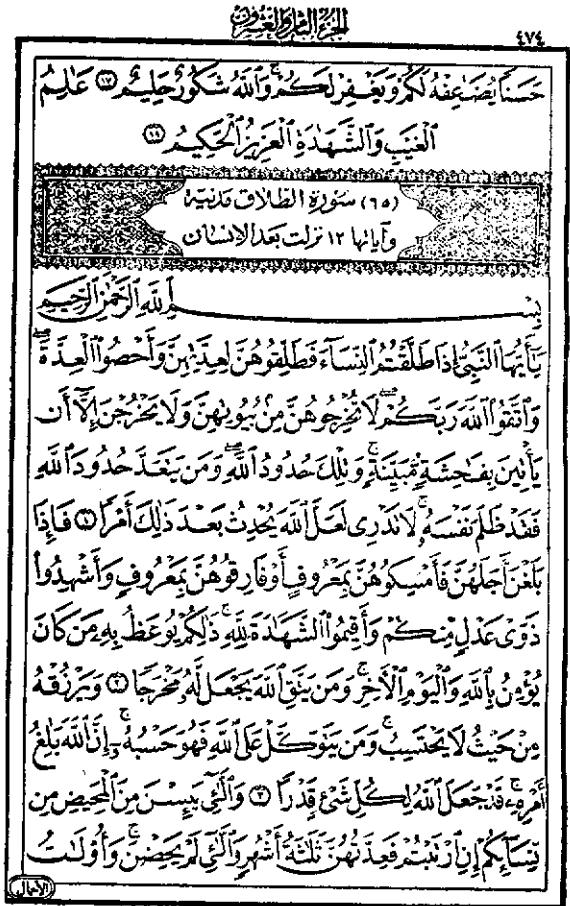 الجزء الثامن والعشرون
٤٧٤
حَسَنًا يُضَٰعِفْهُ لَكُمْ وَيَغْفِرْ لَكُمْ ۚ وَٱللَّهُ شَكُورٌ حَلِيمٌ ۝١٧ عَٰلِمُ
ٱلْغَيْبِ وَٱلشَّهَٰدَةِ ٱلْعَزِيزُ ٱلْحَكِيمُ ۝١٨
(٦٥) سُورَةُ الطَّلَاقِ مَدَنِيَّة
وَآيَاتُهَا ١٢ نَزَلَتْ بَعْدَ الْإِنْسَان
بِسْمِ ٱللَّهِ ٱلرَّحْمَٰنِ ٱلرَّحِيمِ
يَٰٓأَيُّهَا ٱلنَّبِىُّ إِذَا طَلَّقْتُمُ ٱلنِّسَآءَ فَطَلِّقُوهُنَّ لِعِدَّتِهِنَّ وَأَحْصُوا۟ ٱلْعِدَّةَ ۖ
وَٱتَّقُوا۟ ٱللَّهَ رَبَّكُمْ ۖ لَا تُخْرِجُوهُنَّ مِنۢ بُيُوتِهِنَّ وَلَا يَخْرُجْنَ إِلَّآ أَن
يَأْتِينَ بِفَٰحِشَةٍ مُّبَيِّنَةٍ ۚ وَتِلْكَ حُدُودُ ٱللَّهِ ۚ وَمَن يَتَعَدَّ حُدُودَ ٱللَّهِ
فَقَدْ ظَلَمَ نَفْسَهُۥ ۚ لَا تَدْرِى لَعَلَّ ٱللَّهَ يُحْدِثُ بَعْدَ ذَٰلِكَ أَمْرًا ۝١ فَإِذَا
بَلَغْنَ أَجَلَهُنَّ فَأَمْسِكُوهُنَّ بِمَعْرُوفٍ أَوْ فَارِقُوهُنَّ بِمَعْرُوفٍ وَأَشْهِدُوا۟
ذَوَىْ عَدْلٍ مِّنكُمْ وَأَقِيمُوا۟ ٱلشَّهَٰدَةَ لِلَّهِ ۚ ذَٰلِكُمْ يُوعَظُ بِهِۦ مَن كَانَ
يُؤْمِنُ بِٱللَّهِ وَٱلْيَوْمِ ٱلْءَاخِرِ ۚ وَمَن يَتَّقِ ٱللَّهَ يَجْعَل لَّهُۥ مَخْرَجًا ۝٢ وَيَرْزُقْهُ
مِنْ حَيْثُ لَا يَحْتَسِبُ ۚ وَمَن يَتَوَكَّلْ عَلَى ٱللَّهِ فَهُوَ حَسْبُهُۥٓ ۚ إِنَّ ٱللَّهَ بَٰلِغُ
أَمْرِهِۦ ۚ قَدْ جَعَلَ ٱللَّهُ لِكُلِّ شَىْءٍ قَدْرًا ۝٣ وَٱلَّٰٓـِٔى يَئِسْنَ مِنَ ٱلْمَحِيضِ مِن
نِّسَآئِكُمْ إِنِ ٱرْتَبْتُمْ فَعِدَّتُهُنَّ ثَلَٰثَةُ أَشْهُرٍ وَٱلَّٰٓـِٔى لَمْ يَحِضْنَ ۚ وَأُو۟لَٰتُ
الأحمال